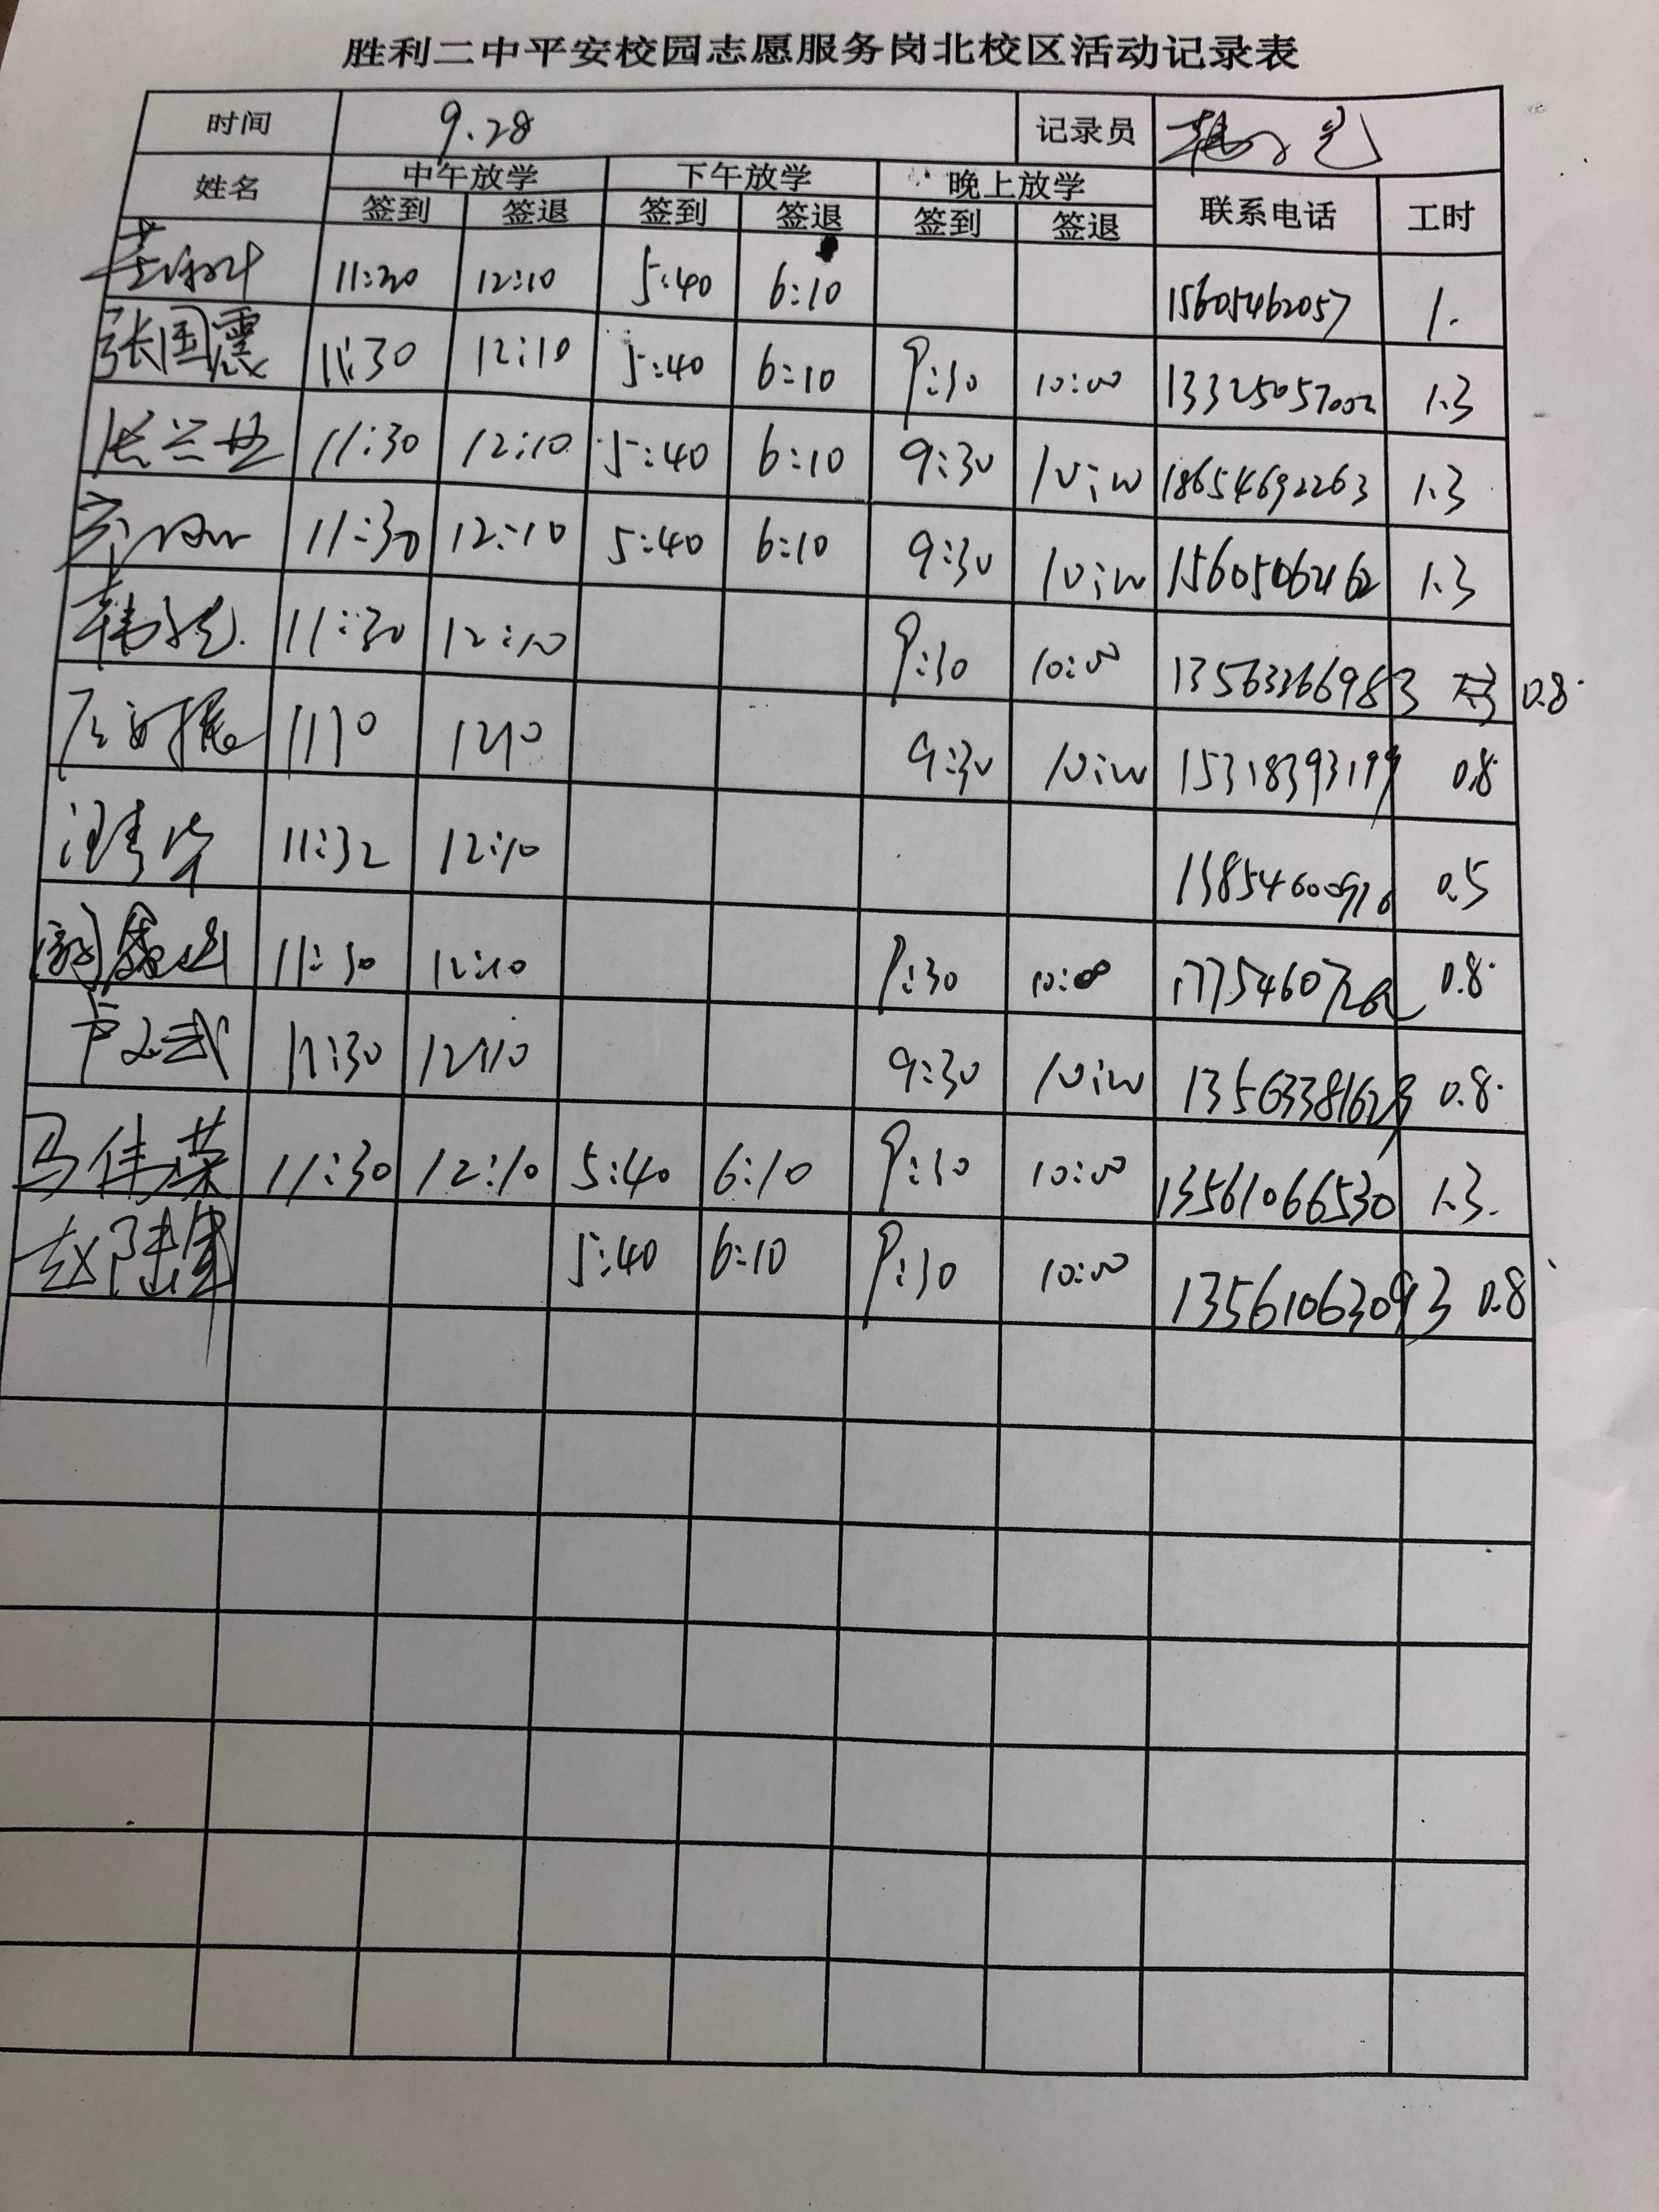 胜利二中平安校园志愿服务岗北校区活动记录表
时间 9.28 记录员
姓名 中午放学 下午放学 晚上放学 联系电话 工时
签到 签退 签到 签退 签到 签退
11:20 12:10 5:40 6:10 15605462057 1.
张国震 11:30 12:10 5:40 6:10 9:30 10:00 13325057002 1.3
11:30 12:10 5:40 6:10 9:30 10:00 18654692263 1.3
11:30 12:10 5:40 6:10 9:30 10:00 1.3
11:30 12:10 9:30 10:00 13563266983 0.8
1210 9:30 10:00 15318393199 0.8
11:32 12:10 0.5
11:30 12:10 9:30 10:00 0.8
卢文武 11:30 12:10 9:30 10:00 13563381623 0.8
马佳荣 11:30 12:10 5:40 6:10 9:30 10:00 13561066530 1.3
赵 5:40 6:10 9:30 10:00 13561063093 0.8